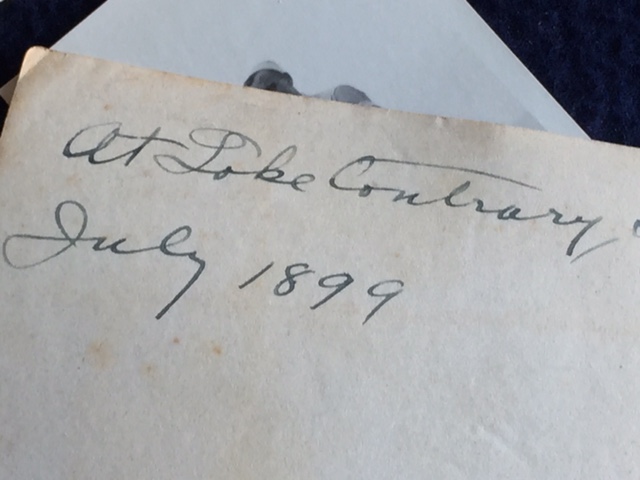 At Lake Contrary
July 1899